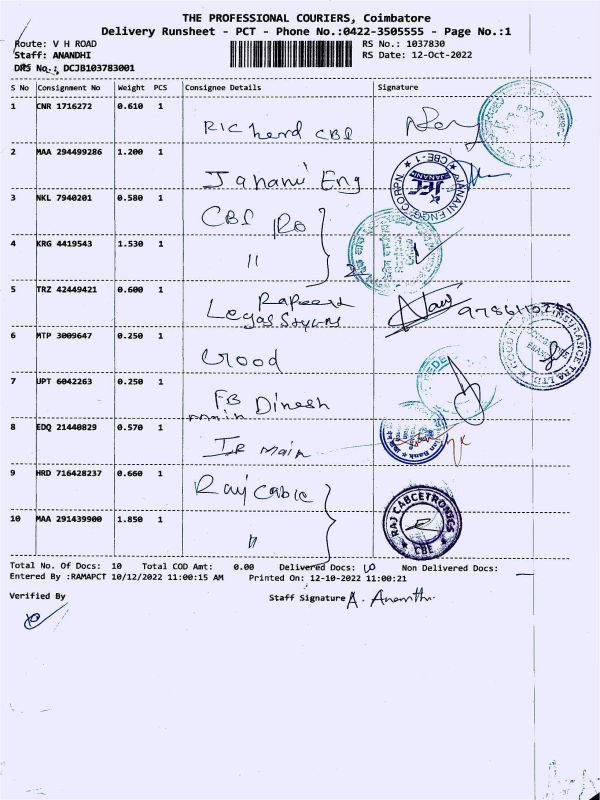 THE PROFESSIONAL COURIERS, Coimbatore
Delivery Runsheet - PCT - Phone No.:0422-3505555 - Page No.:1
Route: V H ROAD
RS No.: 1037830
Staff: ANANDHI
RS Date: 12-Oct-2022
DRS No.: DCJB103783001
S No Consignment No Weight PCS Consignee Details Signature
1 CNR 1716272 0.610 1
2 MAA 294499286 1.200 1
Janani Eng
JANANI ENGG. CORPN. CBE-1
JEC
JANANI
3 NKL 7940201 0.580 1
4 KRG 4419543 1.530 1
"
5 TRZ 42449421 0.600 1
6 MTP 3009647 0.250 1
Good
7 UPT 6042263 0.250 1
FB Dinesh
main
8 EDQ 21440829 0.570 1
main
9 HRD 716428237 0.660 1
Raj Cable
RAJ CABCETRONICS
CBE
10 MAA 291439900 1.850 1
"
Total No. Of Docs: 10 Total COD Amt: 0.00 Delivered Docs: 10 Non Delivered Docs:
Entered By :RAMAPCT 10/12/2022 11:00:15 AM Printed On: 12-10-2022 11:00:21
Verified By
Staff Signature A. Ananthi